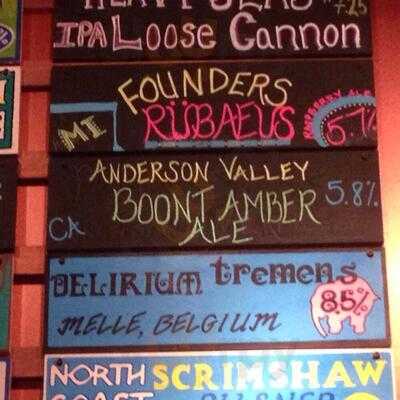 HEAVY SEAS 7.25
IPA LOOSE CANNON
FOUNDERS
MI RÜBAEUS RASPBERRY ALE 5.7%
ANDERSON VALLEY
BOONT AMBER 5.8%
CA ALE
DELIRIUM tremens
8.5%
MELLE, BELGIUM
NORTH SCRIMSHAW
COAST PILSNER